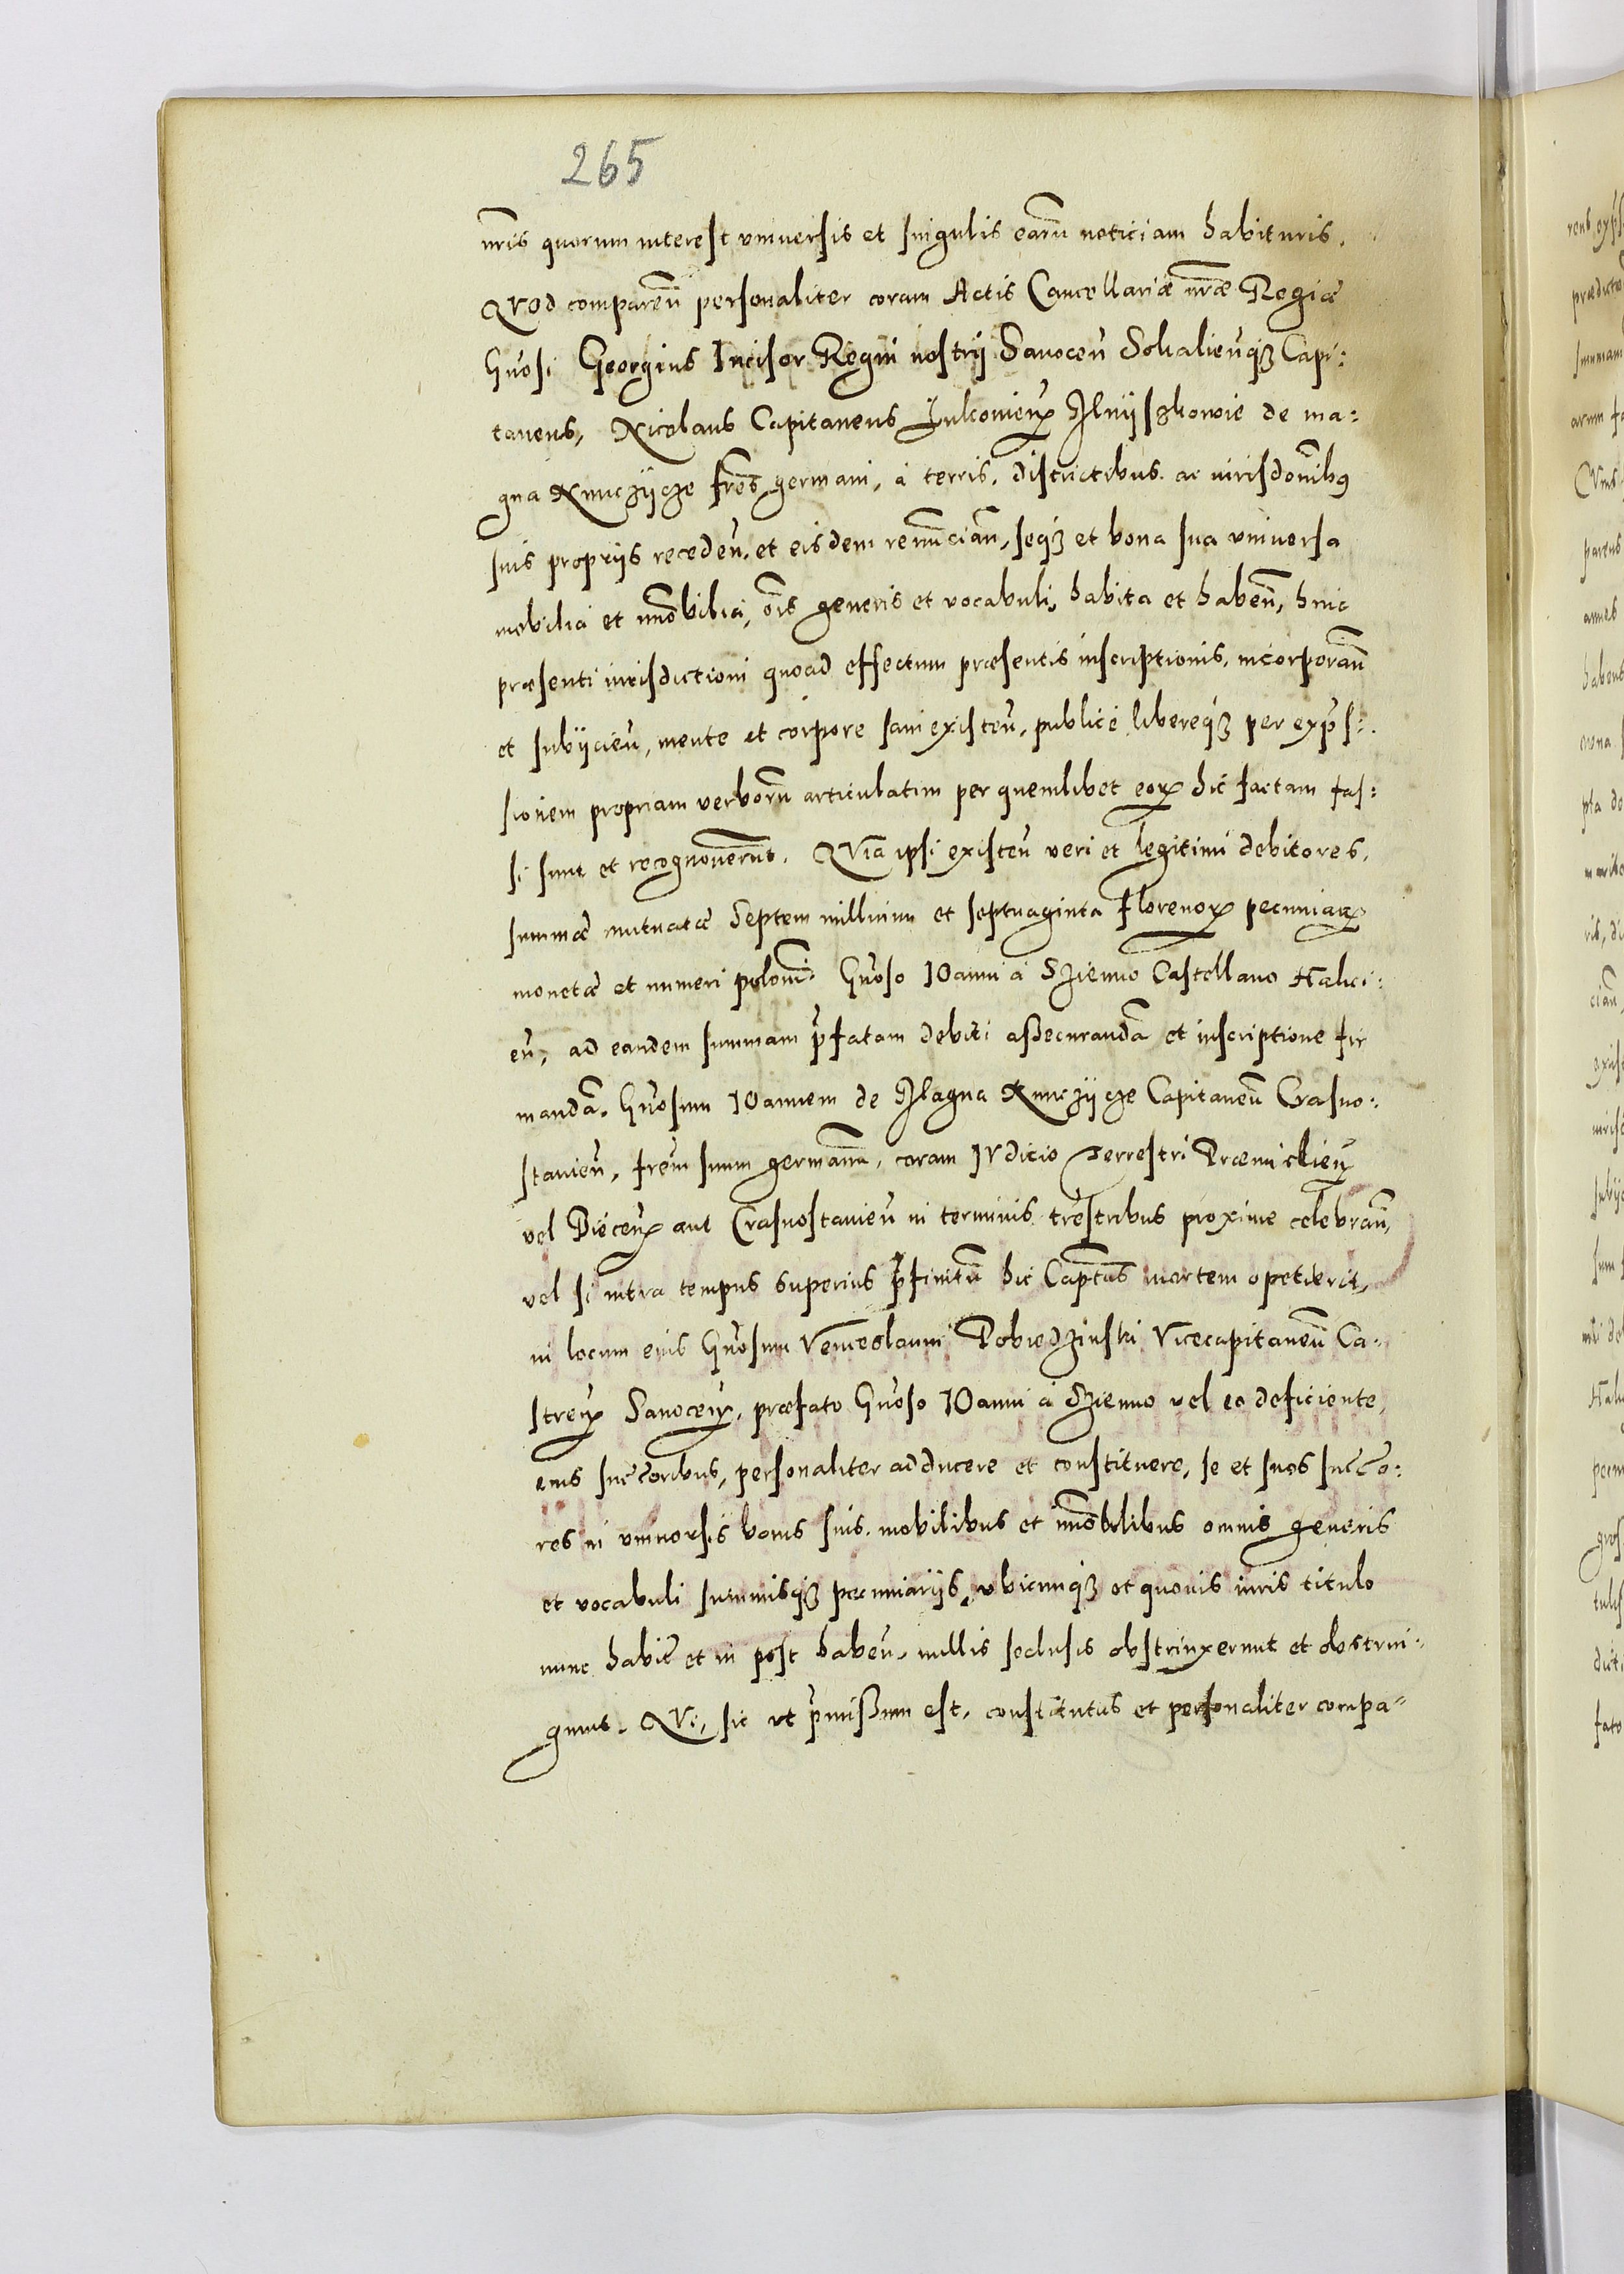 265
nr̃is quorum interest vniuersis et singulis earũ noticiam habituris.
QVod compareñ personaliter coram Actis Cancellariæ nr̃æ Regiæ
Gñosi Georgius Incisor Regni nostrij Sanoceñ Sokalieñqȝ Capi:
taneus, Nicolaus Capitaneus Mnijszkowie de ma:
gna Kunczijcze fr̃es germani, à terris, districtibus ac iurisdoñibꝯ
suis proprijs recedeñ, et eisdem renunciañ, seqȝ et bona sua vniuersa
mobilia et im̃obilia, oĩs generis et vocabuli, habita et habeñ, huic
præsenti iurisdictioni quoad effectum præsentis inscriptionis, incorporañ
et subijcieñ, mente et corpore sani existeñ, publicè libereqȝ per exp̃s:
sionem propriam verborũ articulatim per quemlibet eoꝝ hic factam fas:
si sunt et recognouerunt. QVia ipsi existeñ veri et legitimi debitores,
summæ mutuatæ Septem millium et septuaginta Florenoꝝ pecuniaꝝ
monetæ et numeri poloni. Gñoso IOanni à Szienno Castellano Halici:
eñ, ad eandem summam p̃fatam debiti assecurandã et inscriptione fir
mandã. Gñosum IOannem de Magna Kunczijcze Capitaneũ Crasno:
stauieñ, fr̃em suum germanũ, coram IVdicio Terrestri Præmislieñ
vel Bieceñ aut Crasnostauieñ in terminis tr̃estribus proxime celebrañ,
vel si intra tempus superius p̃finitũ hic Capt̃us mortem opetierit,
in locum eius Gñosum Venceslaum Pobiedzinski Vicecapitaneũ Ca:
streñ Sanoceñ, præfato Gñoso IOanni à Szienno vel eo deficiente,
eius succ̃oribus, personaliter adducere et constituere, se et suos succ̃o:
res in vniuersis bonis suis mobilibus et im̃obilibus omnis generis
et vocabuli summisqȝ pecuniarijs, vbicunqȝ et quouis iuris titulo
nunc habit̃ et in post habeñ, nullis seclusis obstrinxerunt et obstrin:
gunt. QVi, sic vt p̃missum est, constitutus et personaliter compa: